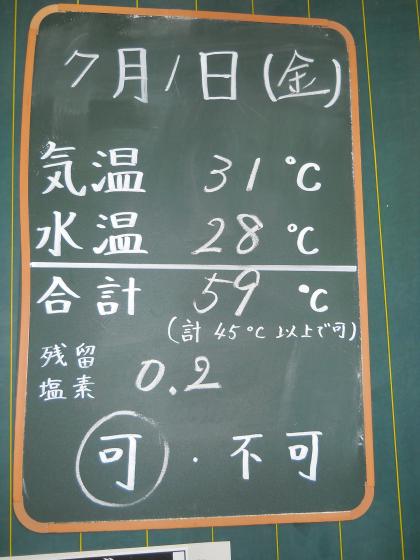 7月1日(金)
気温 31 ℃
水温 28 ℃
合計 59 ℃
(計 45℃ 以上で可)
残留
塩素 0.2
可・不可